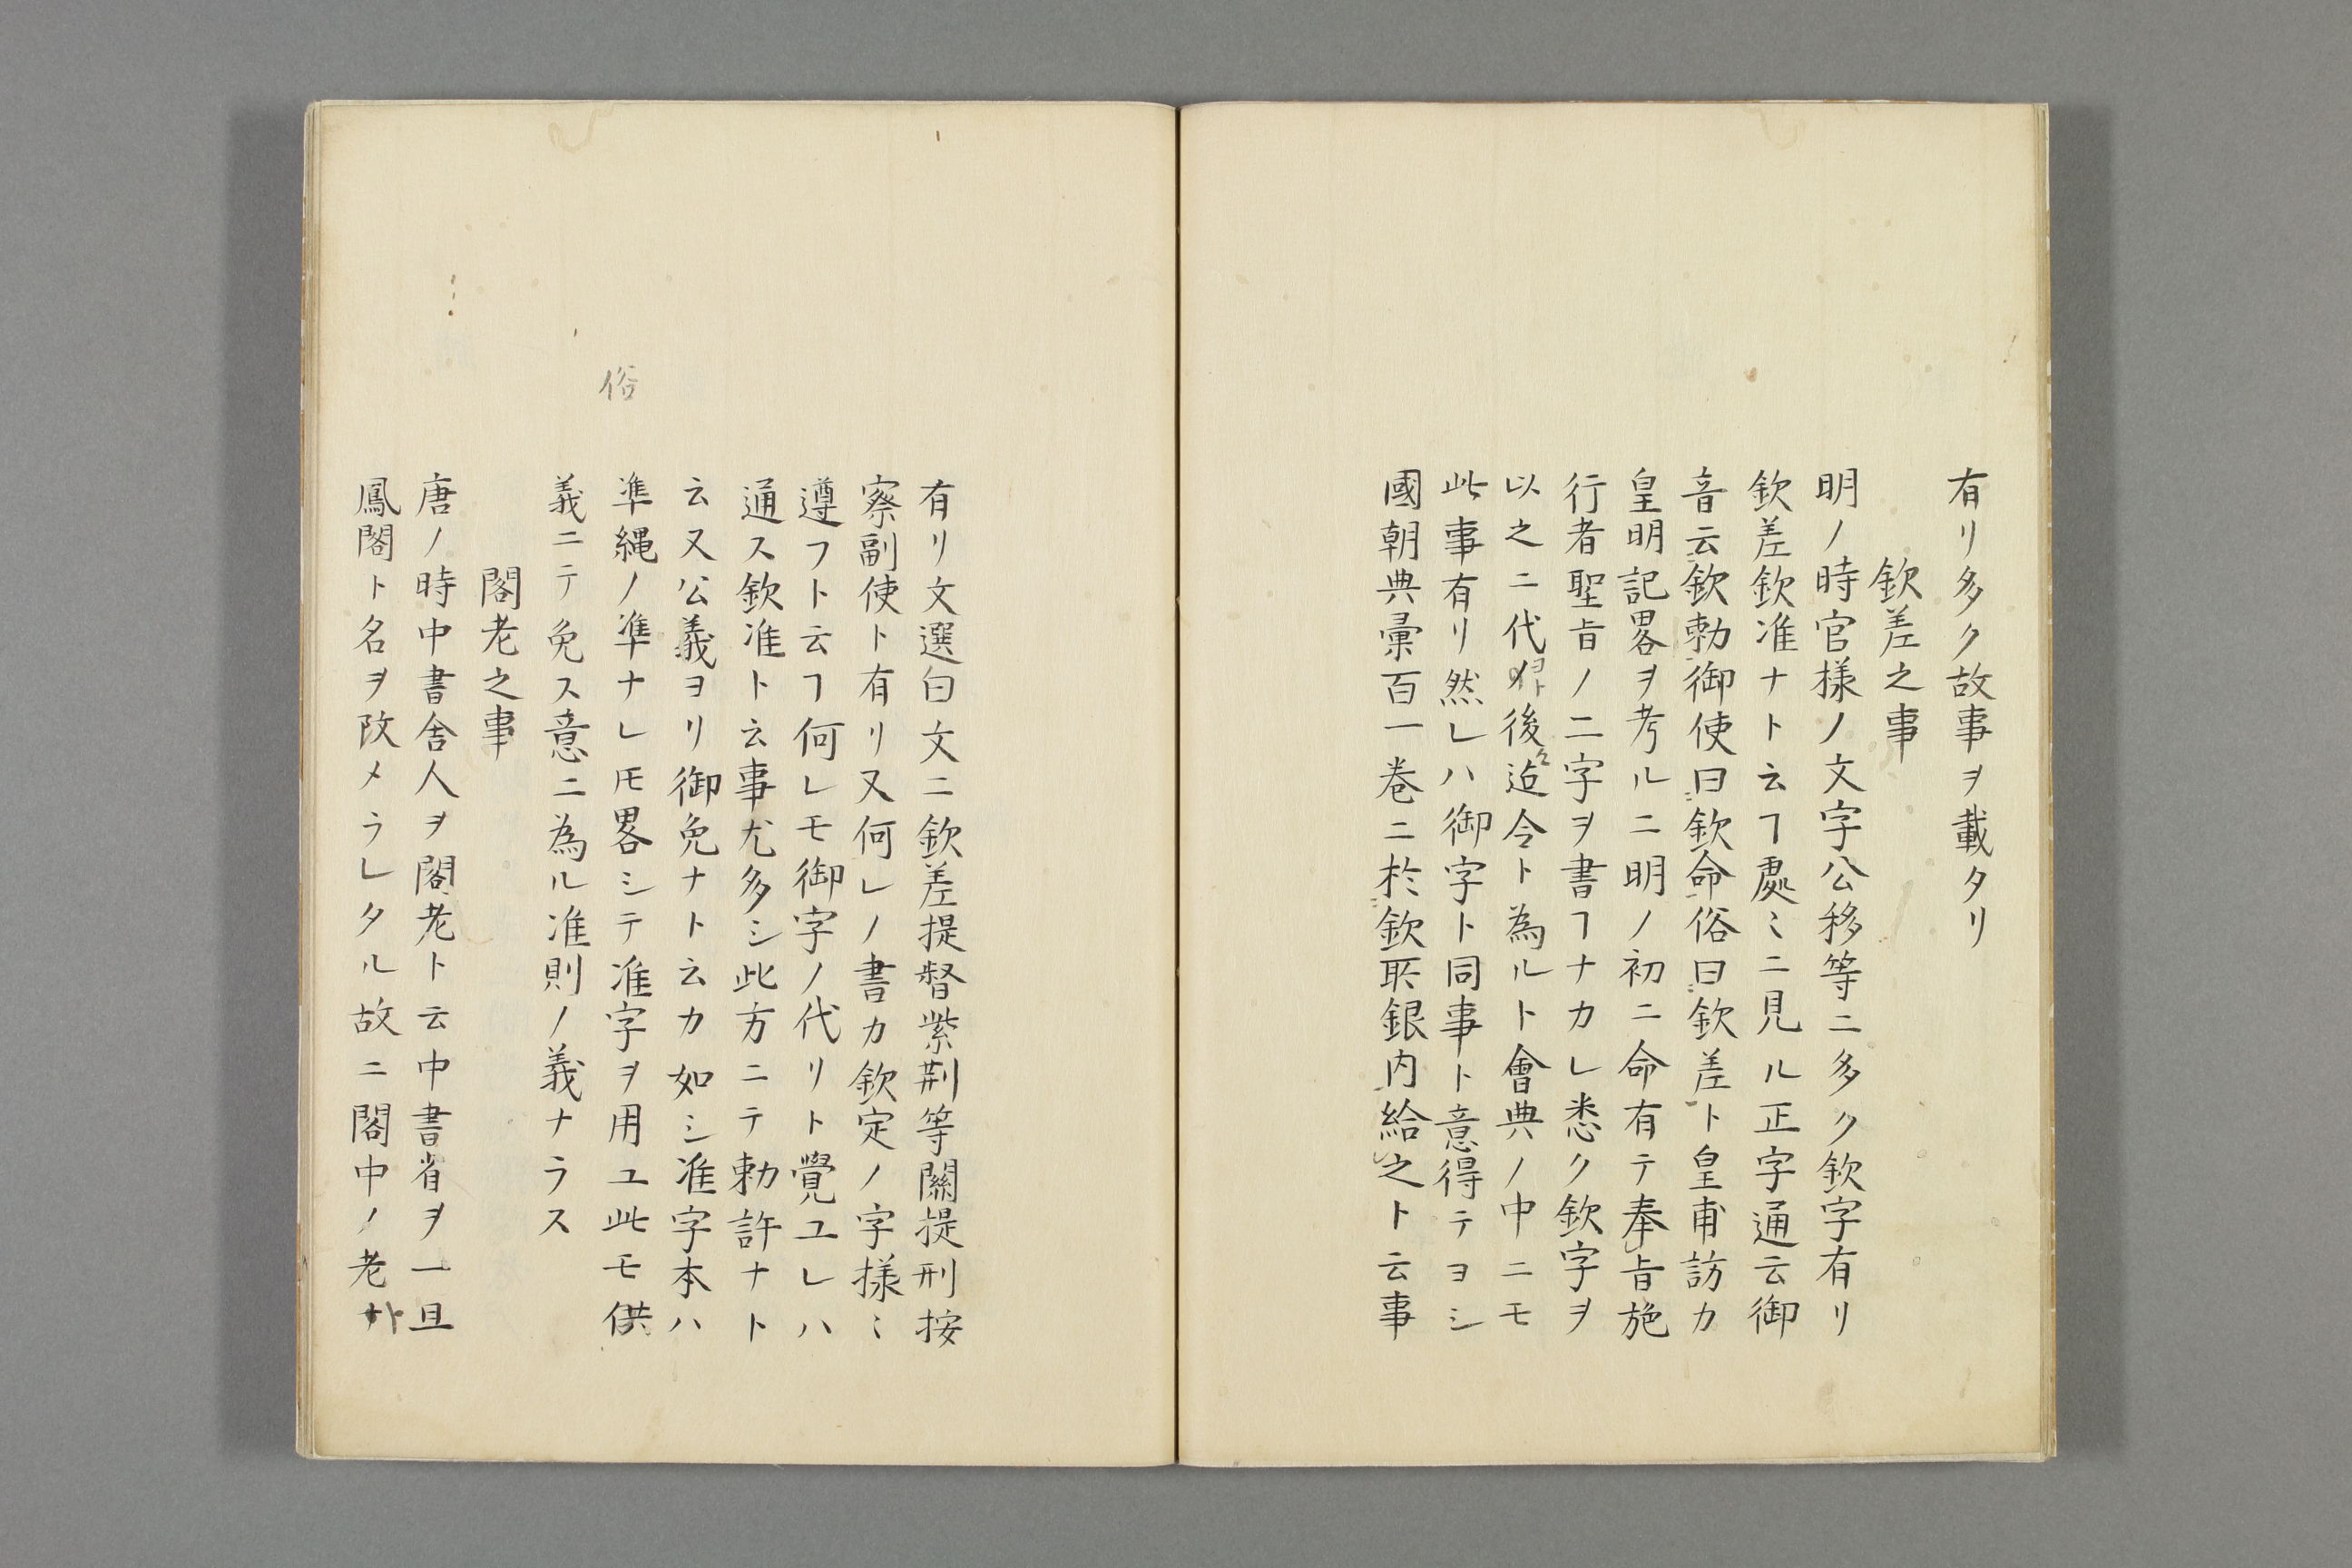 有リ多ク故事ヲ載タリ
欽差之事
明ノ時官様ノ文字公移等ニ多ク欽字有リ
欽差欽准ナト云ヿ處〻ニ見ル正字通云御
音云欽勅御使曰欽命俗曰欽差ト皇甫訪カ
皇明記畧ヲ考ルニ明ノ初ニ命有テ奉旨施
行者聖旨ノ二字ヲ書ヿナカレ悉ク欽字ヲ
以之ニ代ヨト後迨令ト為ルト會典ノ中ニモ
此事有リ然レハ御字ト同事ト意得テヨシ
國朝典彙百一巻ニ於欽取銀内給之ト云事
有リ文選臼文ニ欽差提督紫荆等關提刑按
察副使ト有リ又何レノ書カ欽定ノ字様〻
遵フト云ヿ何レモ御字ノ代リト覺ユレハ
通ス欽准ト云事尤多シ此方ニテ勅許ナト
云又公義ヨリ御免ナト云カ如シ准字本ハ
俗
準縄ノ準ナレㇳモ畧シテ准字ヲ用ユ此モ供
義ニテ免ス意ニ為ル准則ノ義ナラス
閣老之事
唐ノ時中書舎人ヲ閣老ト云中書省ヲ一旦
鳳閣ト名ヲ改メラレタル故ニ閣中ノ老ナト